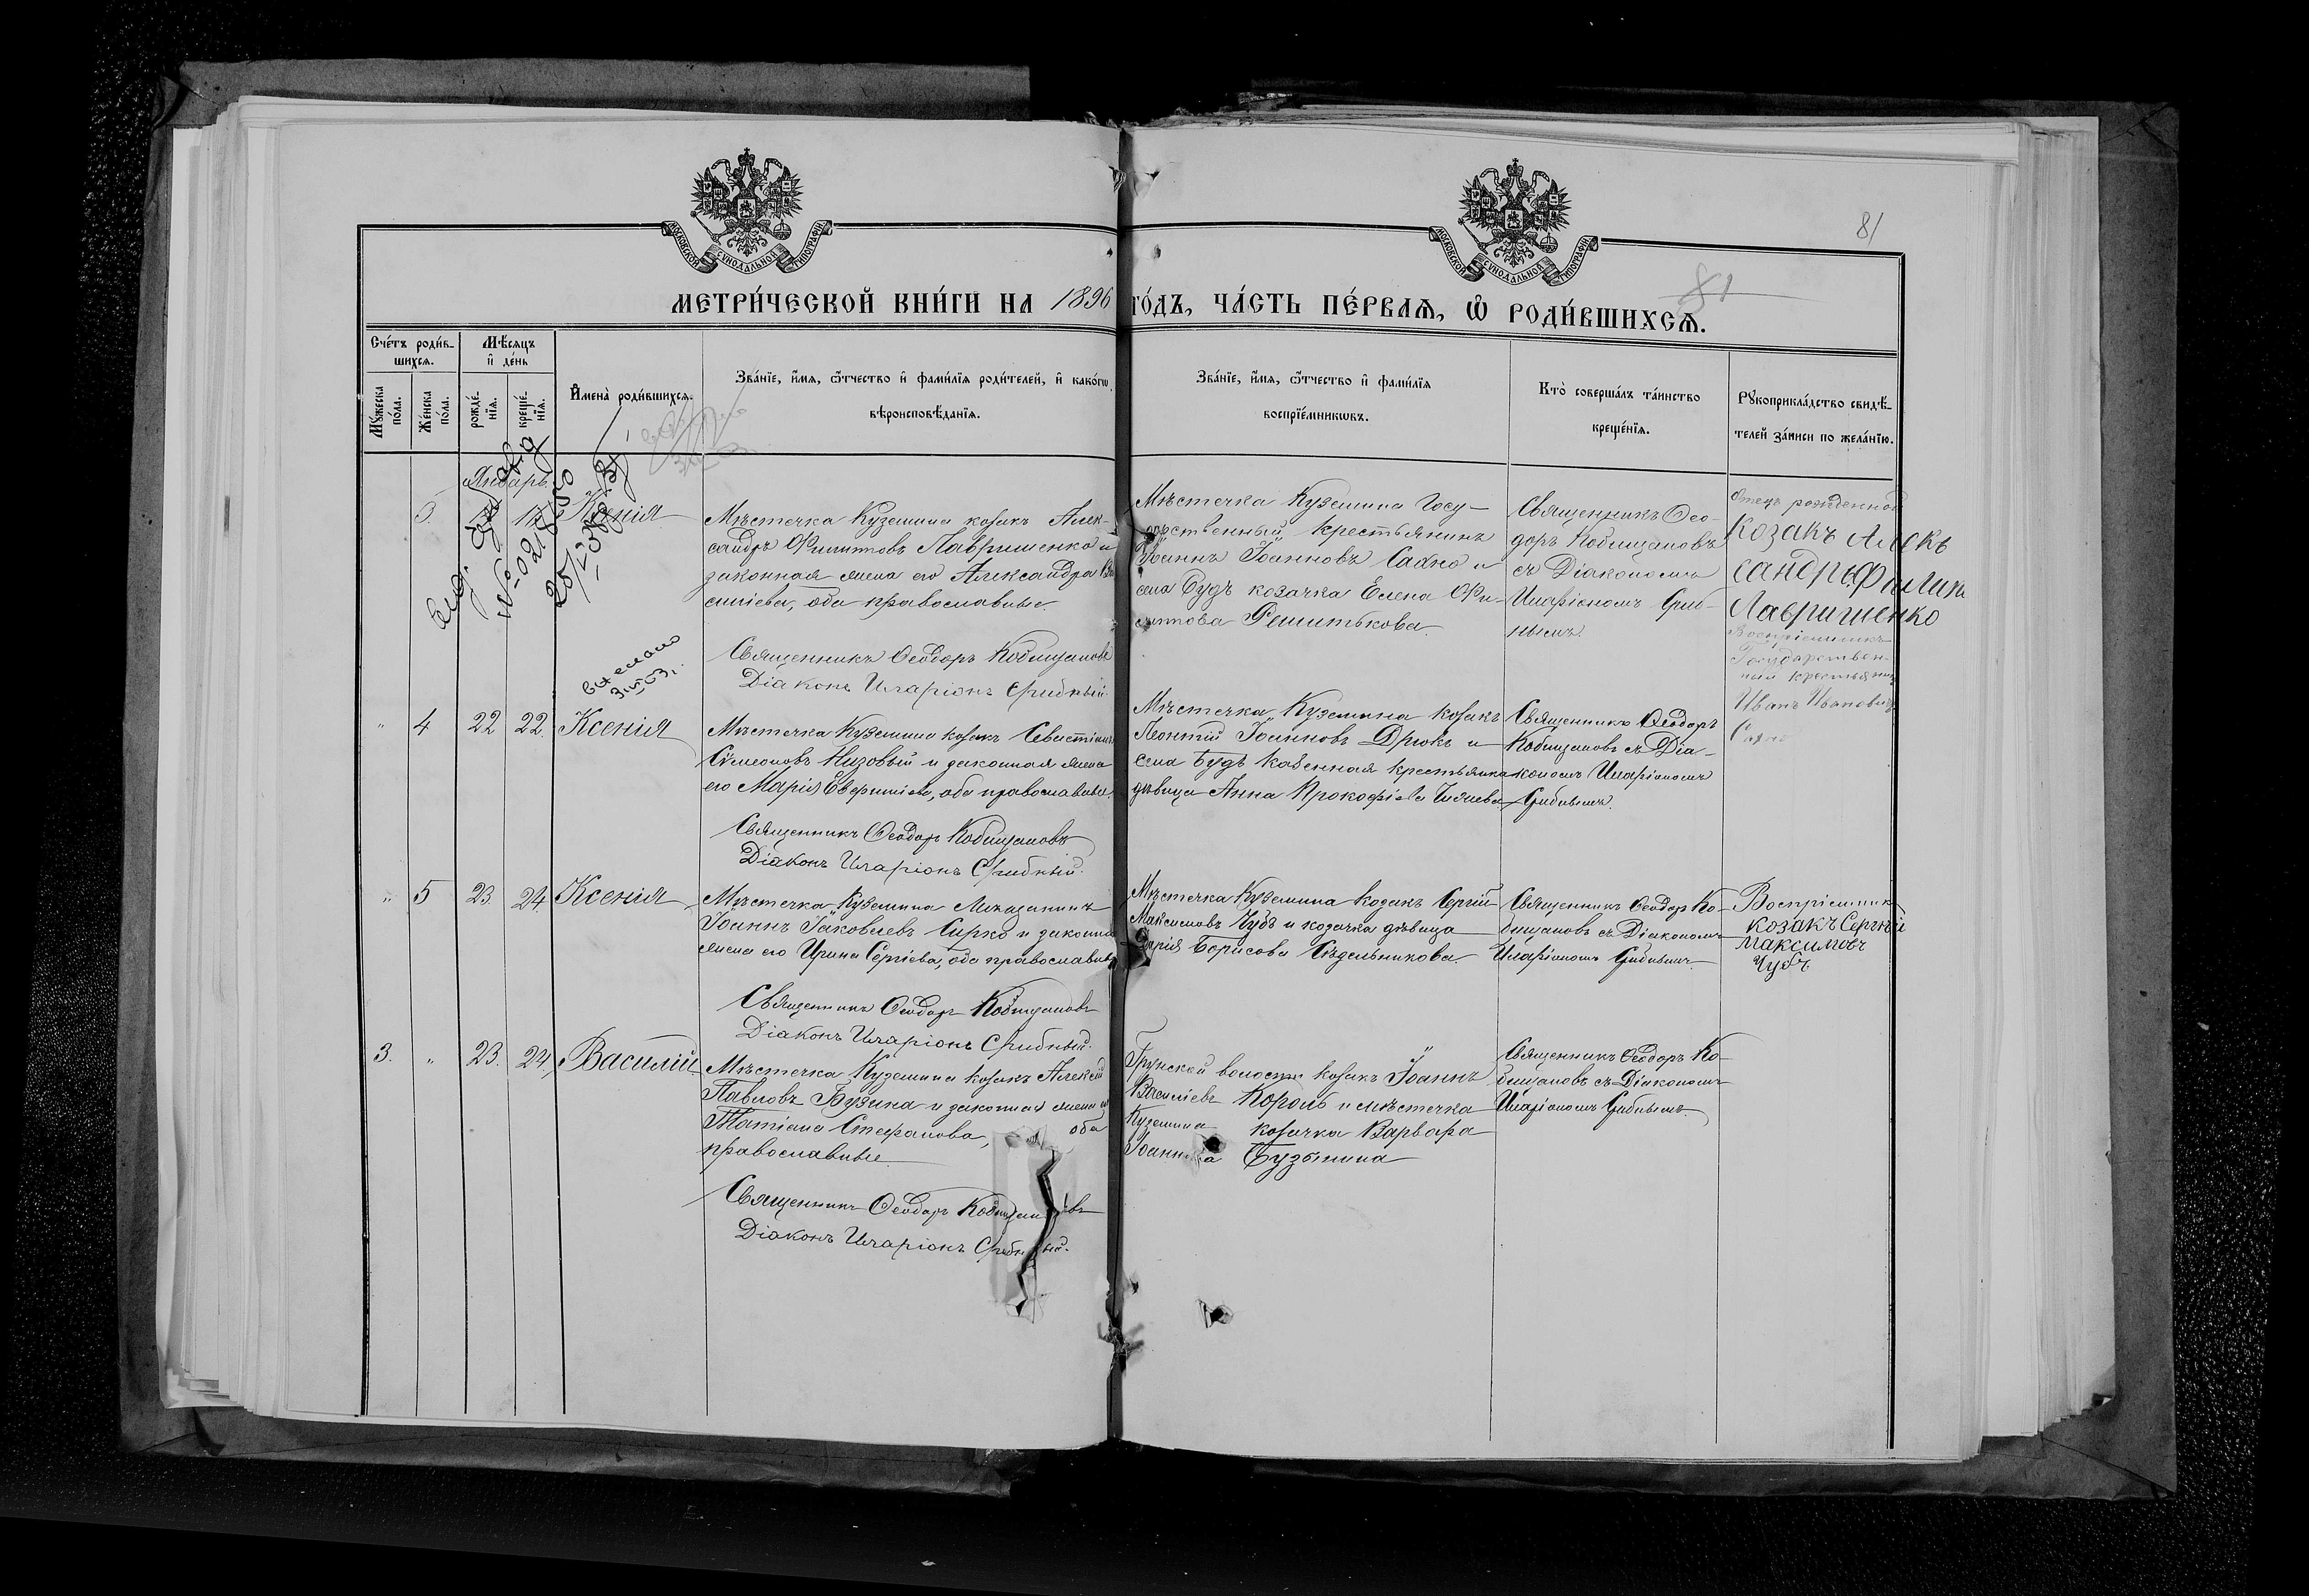 81
МОСКОВСКОЙ СУНОДАЛЬНОЙ ТИПОГРАФІИ
МОСКОВСКОЙ СУНОДАЛЬНОЙ ТИПОГРАФІИ
81
МЕТРИ́ЧЕСКОЙ КНИ́ГИ НА 1896 ГО́ДЪ, ЧА́СТЬ ПЕ́РВАѦ, Ѡ РОДИ́ВШИХСѦ.
Сче́тъ роди́в-
шихсѧ.
Мѣ́сѧцъ
и҆ де́нь
Мꙋ́жеска
по́ла.
Же́нска
по́ла.
рожде́-
нїѧ.
креще́-
нїѧ.
И҆мена̀ роди́вшихсѧ.
Зва́нїе, и҆́мѧ, ѻ҆́тчество и҆ фами́лїѧ роди́телей, и҆ како́гѡ
вѣроисповѣ́данїѧ.
Зва́нїе, и҆́мѧ, ѻ҆́тчество и҆ фами́лїѧ
воспрїе́мникѡвъ.
Кто̀ соверша́лъ та́инство
креще́нїѧ.
Рꙋкоприкла́дство свидѣ́-
телей за́писи по жела́нїю.
Январь.
3. Ксенія
Мѣстечка Куземина козакъ Алек-
сандръ Филипповъ Лавришенко и
законная жена его Александра Ва
силіева, оба православные.
Священникъ Ѳеодоръ Кобищановъ
Діаконъ Иларіонъ Срибный.
Мѣстечка Куземина Госу-
дарственный крестьянинъ
Іоаннъ Іоанновъ Сахно и
села Будъ козачка Елена Фи-
липпова
Священникъ Ѳео-
доръ Кобищановъ
съ Діакономъ
Иларіономъ Сриб-
нымъ.
Отецъ рожденной
Козакъ Алекъ
сандръ Филип
Лавришенко
Воспріемникъ
Государствен-
ный крестьянинъ
Иванъ Ивановичъ
" 4 22 22. Ксенія
Мѣстечка Куземина козакъ Севастіанъ
Сѵмеоновъ Низовый и законная жена
его Марія Евфиміева, оба православные.
Священникъ Ѳеодоръ Кобищановъ
Діаконъ Иларіонъ Срибный.
Мѣстечка Куземина козакъ
Леонтій Іоанновъ Дрюкъ и
села Будъ казенная крестьянка
дѣвица Анна Прокофіева
Священникъ Ѳеодоръ
Кобищановъ съ Діа-
кономъ Иларіономъ
Срибнымъ.
" 5 23. 24. Ксенія
Мѣстечка Куземина Мѣщанинъ
Іоаннъ Іаковлевъ Сирко и законная
жена его Ирина Сергіева, оба православные
Священникъ Ѳеодоръ Кобищановъ
Діаконъ Иларіонъ Срибный.
Мѣстечка Куземина козакъ Сергій
Максимовъ Чубъ и козачка дѣвица
Марія Борисова Сѣдельникова.
Священникъ Ѳеодоръ Ко-
бищановъ съ Діакономъ
Иларіономъ Срибнымъ.
Воспріемникъ
козакъ Сергѣй
Максимовъ
Чубъ
3. " 23. 24. Василій
Мѣстечка Куземина козакъ Алексій
Павловъ Бузина и законная жена его
Татіана Стефанова, оба
православные.
Священникъ Ѳеодоръ Кобищановъ
Діаконъ Иларіонъ Срибный.
Грунской волости козакъ Іоаннъ
Василіевъ Король и мѣстечка
Куземина козачка Варвара
Іоаннова Бузинина
Священникъ Ѳеодоръ Ко-
бищановъ съ Діакономъ
Иларіономъ Срибнымъ.